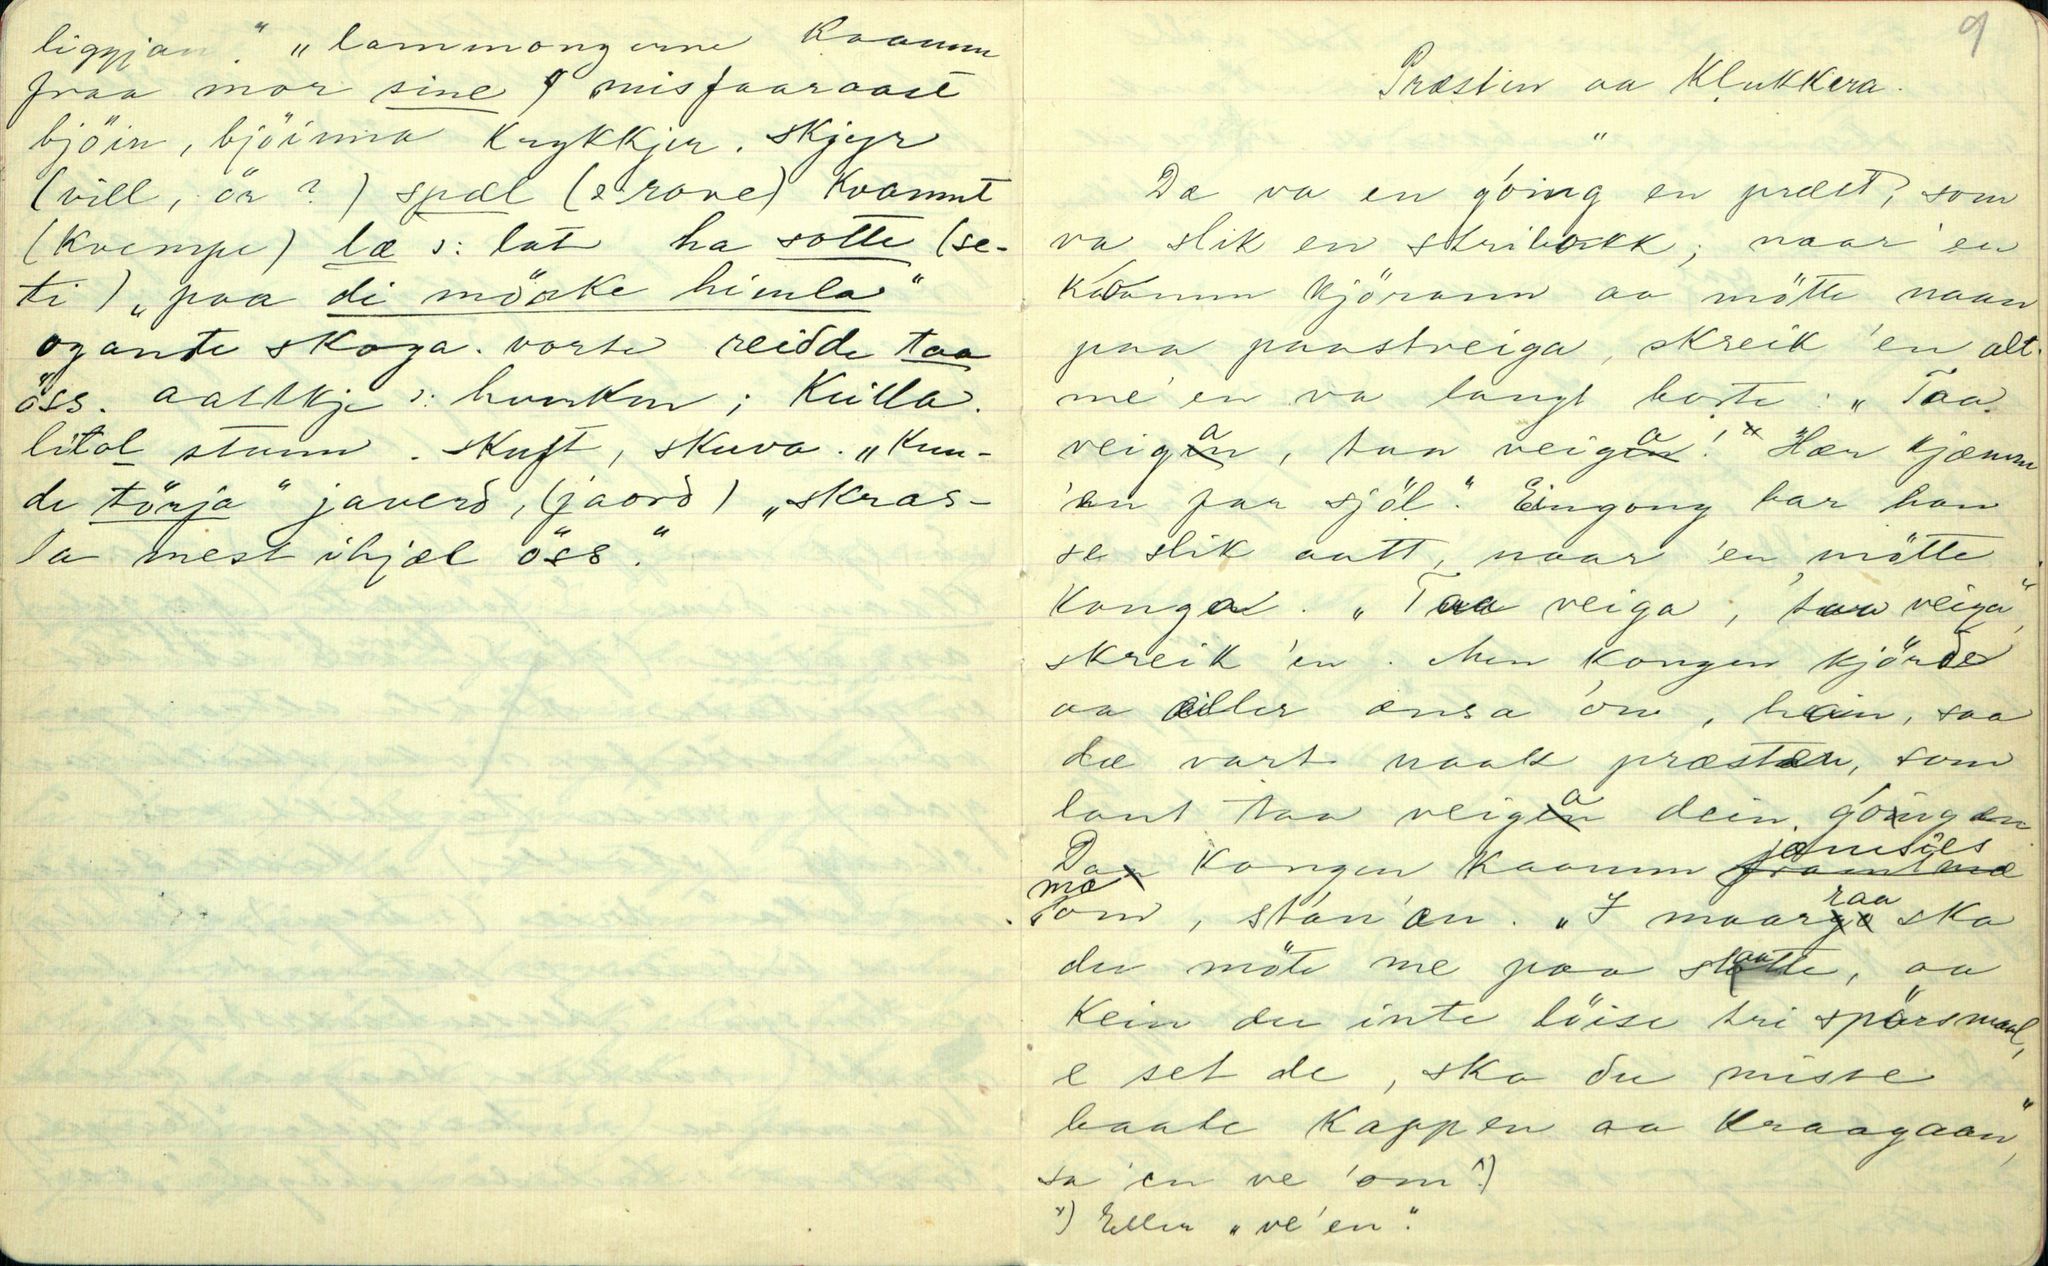 liggjan." "lammongerne Kaamm
fraa mor sine misfaaraast
bjöin, bjöinna Krykkjer. Skjyr
(vill, ör?) spæl (ɔ: rove) Kvamnt
(Kvempe) læ ɔ: lat ha sotte (se-
ti) "paa di mörke himla"
ogande skoga. vorte reidde taa
öss. aattkje ɔ: hvorken; Kuilla.
litol stunn. Skuft, skuva. "Kun-
de törja" javerd, (jaord) "skras-
la mest ihjæl öss."
9
Præstin aa Klukkera.
"
Da va en góing en præst, som
va slik en stribokk; naar 'en
Kaamm kjörann aa mötte naan
paa paastveiga, skreik 'en alt-
me 'en va langt borte: "Taa
veiga, taa veiga! Hær kjæmm
'en par sjöl." Eingong bar han
se slik aatt, naar 'en mötte
Konga. "Taa veiga, taa veiga",
skreik 'en. Men Kongen kjörde
aa eiller ænsa 'om, hain, saa
dæ vart naak præsten, som
lant taa veiga dein góingen
Da Kongen Kaamm jamsies
mæ 'om, sta'n 'en. "I maaraa ska
du möte me paa slaatte, aa
Kein du inte löise tri spörsmaal,
e set de, ska du miste
baate Kappen aa Kraagaan",
sa 'en ve 'om.*)
*) Eller "ve 'en".